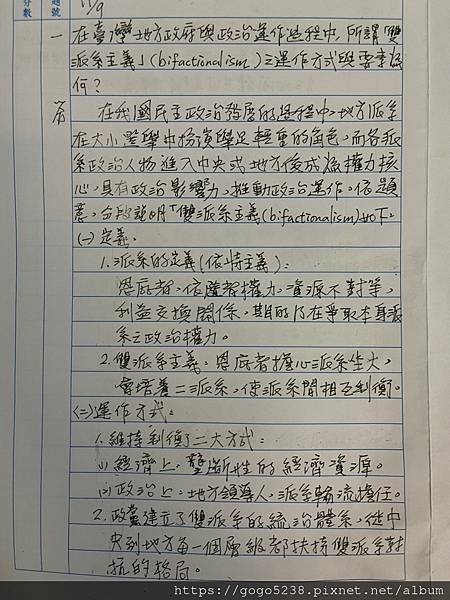 分數
題號
11/9
一 在臺灣地方政府與政治運作過程中,所謂「雙
派系主義」(bifactionalism)之運作方式與要素為
何?
答 在我國民主政治發展的過程中,地方派系
在大小選舉中扮演舉足輕重的角色,而各派
系政治人物進入中央或地方後成為權力核
心,具有政治影響力,推動政治運作。依題
意,分段說明「雙派系主義(bifactionalism)如下。
(一)定義。
1.派系的定義(依恃主義):
恩庇者,依隨者權力,資源不對等,
利益交換關係,其目的乃在爭取本身派
系之政治權力。
2.雙派系主義,恩庇者擔心派系坐大,
會培養二派系,使派系間相互制衡。
(二)運作方式:
1.維持制衡二大方式:
(1)經濟上,壟斷性的經濟資源。
(2)政治上,地方領導人,派系輪流擔任。
2.政黨建立了雙派系的統治體系,從中
央到地方每一個層級都扶持雙派系對
抗的格局。
https://gogo5238.pixnet.net/album